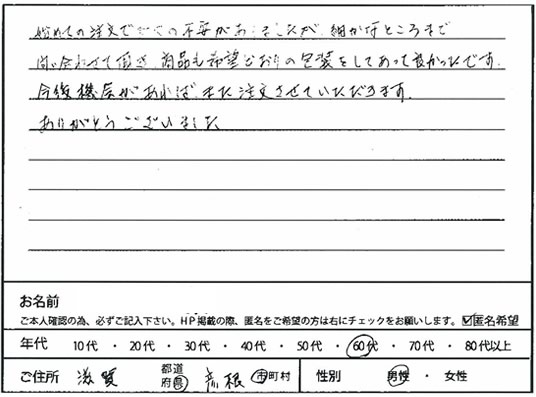 始めての注文で の不安がありましたが、細かなところまで
問い合わせて頂き、商品も希望どおりの包装をしてあって良かったです。
今後機会があれば、また注文させていただきます。
ありがとうございました
お名前
ご本人確認の為、必ずご記入下さい。HP掲載の際、匿名をご希望の方は右にチェックをお願いします。☑匿名希望
年代 10代 ・ 20代 ・ 30代 ・ 40代 ・ 50代 ・ 60代 ・ 70代 ・ 80代以上
ご住所 滋賀 都道府県 彦根 市町村 性別 男性 ・ 女性